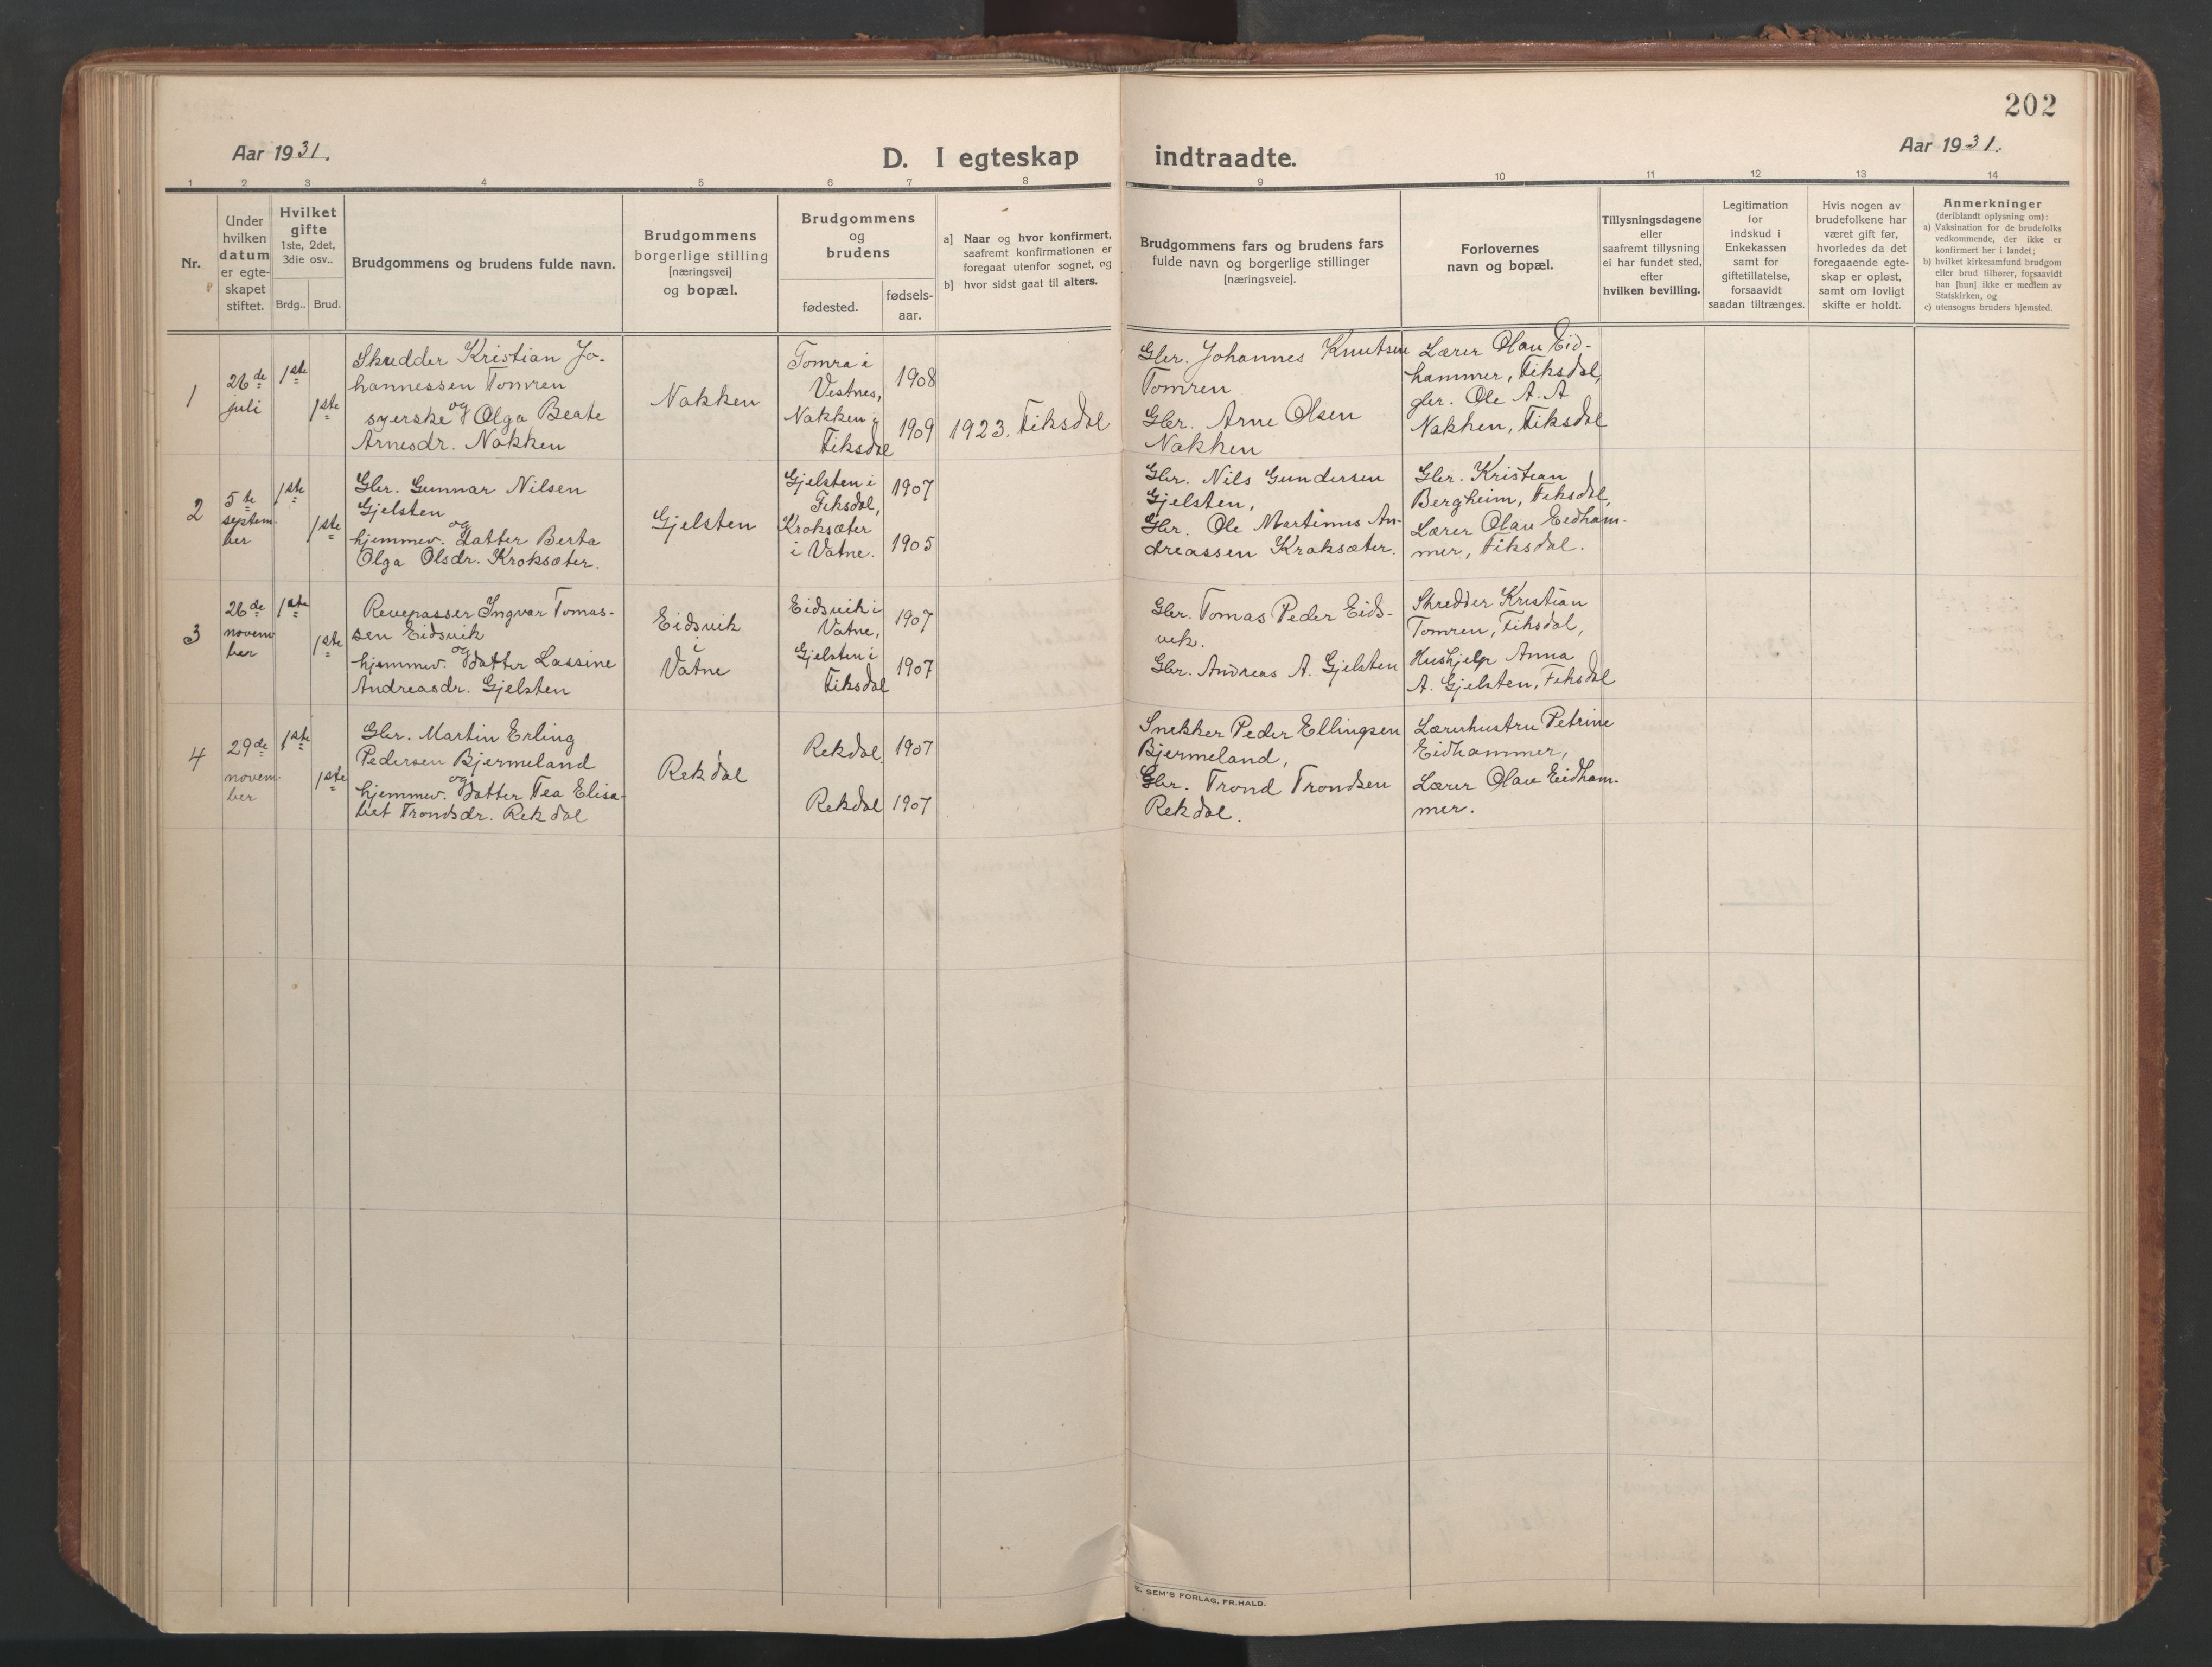 202
Aar 1931.
D. I egteskap
indtraadte.
Aar 1931.
1 2 3 4 5 6 7 8 9 10 11 12 13 14
Nr.
Under
hvilken
datum
er egte-
skapet
stiftet.
Hvilket
gifte
1ste, 2det,
3die osv..
Brdg.. Brud.
Brudgommens og brudens fulde navn.
Brudgommens
borgerlige stilling
[næringsvei]
og bopæl.
Brudgommens
og
brudens
fødested.
fødsels-
aar.
a] Naar og hvor konfirmert,
saafremt konfirmationen er
foregaat utenfor sognet, og
b] hvor sidst gaat til alters.
Brudgommens fars og brudens fars
fulde navn og borgerlige stillinger
[næringsveie].
Forlovernes
navn og bopæl.
Tillysningsdagene
eller
saafremt tillysning
ei har fundet sted,
efter
hvilken bevilling.
Legitimation
for
indskud i
Enkekassen
samt for
giftetillatelse,
forsaavidt
saadan tiltrænges.
Hvis nogen av
brudefolkene har
været gift før,
hvorledes da det
foregaaende egte-
skap er opløst,
samt om lovligt
skifte er holdt.
Anmerkninger
(deriblandt oplysning om):
a) Vaksination for de brudefolks
vedkommende, der ikke er
konfirmert her i landet;
b) hvilket kirkesamfund brudgom
eller brud tilhører, forsaavidt
han [hun] ikke er medlem av
Statskirken, og
c) utensogns bruders hjemsted.
1
26de
juli
1ste
1ste
Skredder Kristian Jo-
hannessen Tomren
og
syerske Olga Beate
Arnesdr. Nakken
Nakken
Tomra i
Vestnes,
Nakken i
Fiksdal
1908
1909
1923. Fiksdal
Gbr. Johannes Knutsen
Tomren
Gbr. Arne Olsen
Nakken
Lærer Olav Eid-
hammer, Fiksdal,
gbr. Ole A. A
Nakken, Fiksdal
2
5te
septem-
ber
1ste
1ste
Gbr. Gunnar Nilsen
Gjelsten
og
hjemmev. datter Berta
Olga Olsdr. Kroksæter.
Gjelsten
Gjelsten i
Fiksdal,
Kroksæter
i Vatne.
1907
1905
Gbr. Nils Gundersen
Gjelsten,
Gbr. Ole Martinus An-
dreassen Kroksæter.
Gbr. Kristian
Bergheim, Fiksdal,
Lærer Olav Eidham-
mer, Fiksdal.
3
26de
novem
ber
1ste
1ste
Revepasser Ingvar Tomas-
sen Eidsvik
og
hjemmev. datter Lassine
Andreasdr. Gjelsten
Eidsvik
i
Vatne
Eidsvik i
Vatne,
Gjelsten i
Fiksdal
1907
1907
Gbr. Tomas Peder Eids-
vik.
Gbr. Andreas A. Gjelsten
Skredder Kristian
Tomren, Fiksdal,
Hushjelp Anna
A. Gjelsten, Fiksdal
4
29de
novem-
ber
1ste
1ste
Gbr. Martin Erling
Pedersen Bjermeland
og
hjemmev. datter Tea Elisa-
bet Trondsdr. Rekdal
Rekdal
Rekdal,
Rekdal
1907
1907
Snekker Peder Ellingsen
Bjermeland,
Gbr. Trond Trondsen
Rekdal.
Lærerhustru Petrine
Eidhammer,
Lærer Olav Eidham-
mer.
E. SEM'S FORLAG, FR.HALD.